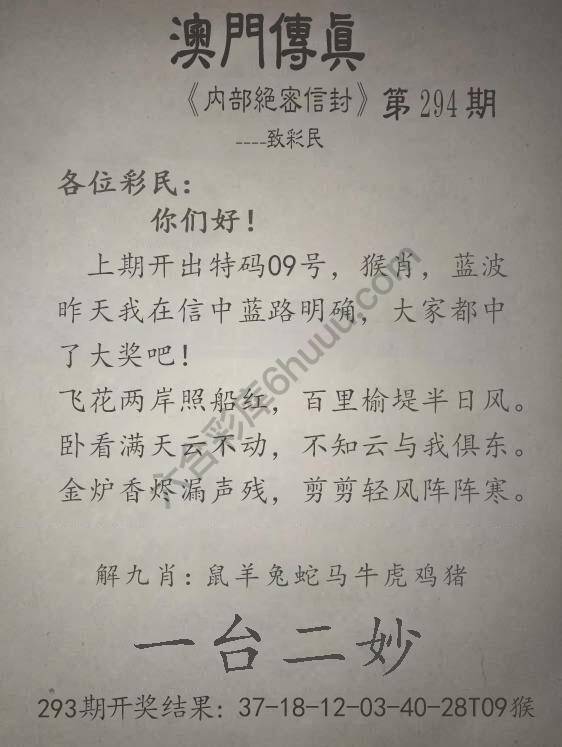 澳門傳真
《内部絕密信封》第294期
----致彩民
各位彩民：
你们好！
上期开出特码09号，猴肖，蓝波
昨天我在信中蓝路明确，大家都中
了大奖吧！
飞花两岸照船红，百里榆堤半日风。
卧看满天云不动，不知云与我俱东。
金炉香烬漏声残，剪剪轻风阵阵寒。
解九肖：鼠羊兔蛇马牛虎鸡猪
一台二妙
293期开奖结果：37-18-12-03-40-28T09猴
六合彩库6huuu.com